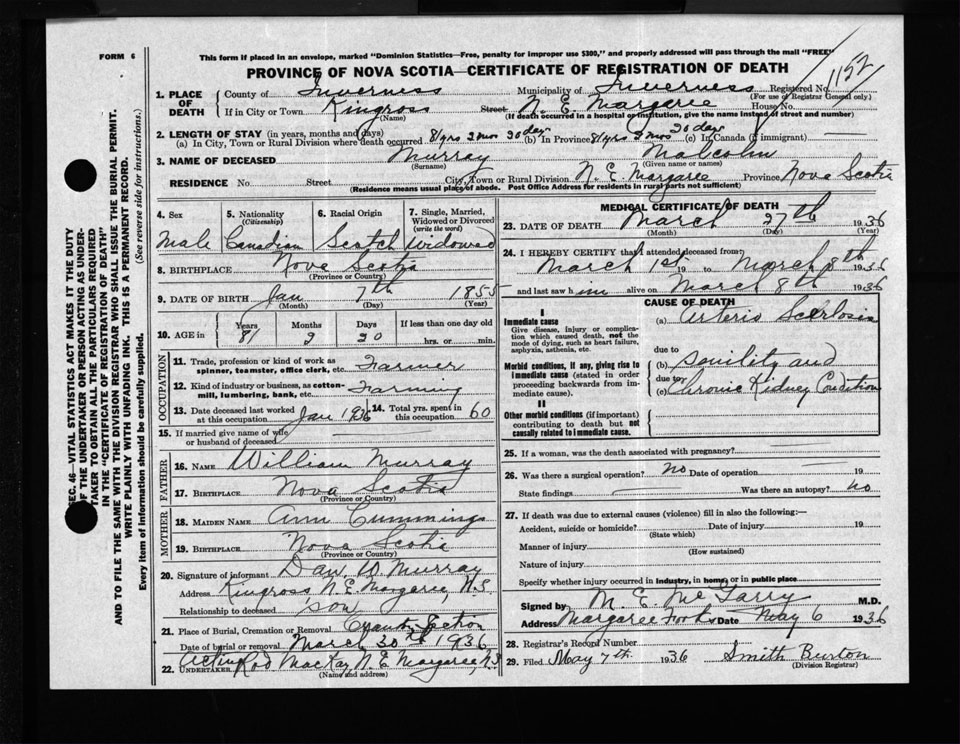 FORM 6
This form if placed in an envelope, marked "Dominion Statistics—Free, penalty for improper use $300," and properly addressed will pass through the mail "FREE"
PROVINCE OF NOVA SCOTIA—CERTIFICATE OF REGISTRATION OF DEATH
1152
1. PLACE OF DEATH
County of Inverness Municipality of Inverness Registered No.
(For use of Registrar General only)
If in City or Town Kingross Street N. E. Margaree House No.
(Name) (If death occurred in a hospital or institution, give the name instead of street and number)
2. LENGTH OF STAY (in years, months and days)
(a) In City, Town or Rural Division where death occurred 81 yrs 2 mos 20 days (b) In Province 81 yrs 2 mos 20 days (c) In Canada (if immigrant)
3. NAME OF DECEASED Murray Malcolm
(Surname) (Given name or names)
RESIDENCE No. Street City, Town or Rural Division N. E. Margaree Province Nova Scotia
(Residence means usual place of abode. Post Office Address for residents in rural parts not sufficient)
4. Sex Male
5. Nationality (Citizenship) Canadian
6. Racial Origin Scotch
7. Single, Married, Widowed or Divorced (write the word) Widowed
8. BIRTHPLACE Nova Scotia
(Province or Country)
9. DATE OF BIRTH Jan 7th 1855
(Month) (Day) (Year)
10. AGE in Years 81 Months 2 Days 20 If less than one day old hrs. or min.
OCCUPATION
11. Trade, profession or kind of work as spinner, teamster, office clerk, etc. Farmer
12. Kind of industry or business, as cotton-mill, lumbering, bank, etc. Farming
13. Date deceased last worked at this occupation Jan 1936 14. Total yrs. spent in this occupation 60
15. If married give name of wife or husband of deceased
FATHER
16. NAME William Murray
17. BIRTHPLACE Nova Scotia
(Province or Country)
MOTHER
18. MAIDEN NAME Ann Cummings
19. BIRTHPLACE Nova Scotia
(Province or Country)
20. Signature of informant Dan. W. Murray
Address Kingross N. E. Margaree, N.S.
Relationship to deceased son
21. Place of Burial, Cremation or Removal
Date of burial or removal March 30th 1936
22. Acting UNDERTAKER Rod MacKay N. E. Margaree, N.S.
(Name and address)
MEDICAL CERTIFICATE OF DEATH
23. DATE OF DEATH March 27th 1936
(Month) (Day) (Year)
24. I HEREBY CERTIFY that I attended deceased from:
March 1st 19 to March 8th 1936
and last saw him alive on March 8th 1936
CAUSE OF DEATH
I
Immediate cause
Give disease, injury or complication which caused death, not the mode of dying, such as heart failure, asphyxia, asthenia, etc.
(a) Arterio Sclerlosis
due to
Morbid conditions, if any, giving rise to immediate cause (stated in order proceeding backwards from immediate cause).
(b) Senility and
due to
(c) Chronic Kidney Condition
II
Other morbid conditions (if important) contributing to death but not causally related to immediate cause.
25. If a woman, was the death associated with pregnancy?
26. Was there a surgical operation? no Date of operation 19
State findings Was there an autopsy? no
27. If death was due to external causes (violence) fill in also the following:
Accident, suicide or homicide? Date of injury 19
(State which)
Manner of injury
(How sustained)
Nature of injury
Specify whether injury occurred in industry, in home, or in public place
Signed by M. E. McGarry M.D.
Address Margaree Forks Date May 6 1936
28. Registrar's Record Number
29. Filed May 7th 1936 Smith Burton
(Division Registrar)
SEC. 46—VITAL STATISTICS ACT MAKES IT THE DUTY
OF THE UNDERTAKER OR PERSON ACTING AS UNDER-
TAKER TO OBTAIN ALL THE PARTICULARS REQUIRED
IN THE "CERTIFICATE OF REGISTRATION OF DEATH"
AND TO FILE THE SAME WITH THE DIVISION REGISTRAR WHO SHALL ISSUE THE BURIAL PERMIT.
WRITE PLAINLY WITH UNFADING INK. THIS IS A PERMANENT RECORD.
Every item of information should be carefully supplied. (See reverse side for instructions.)